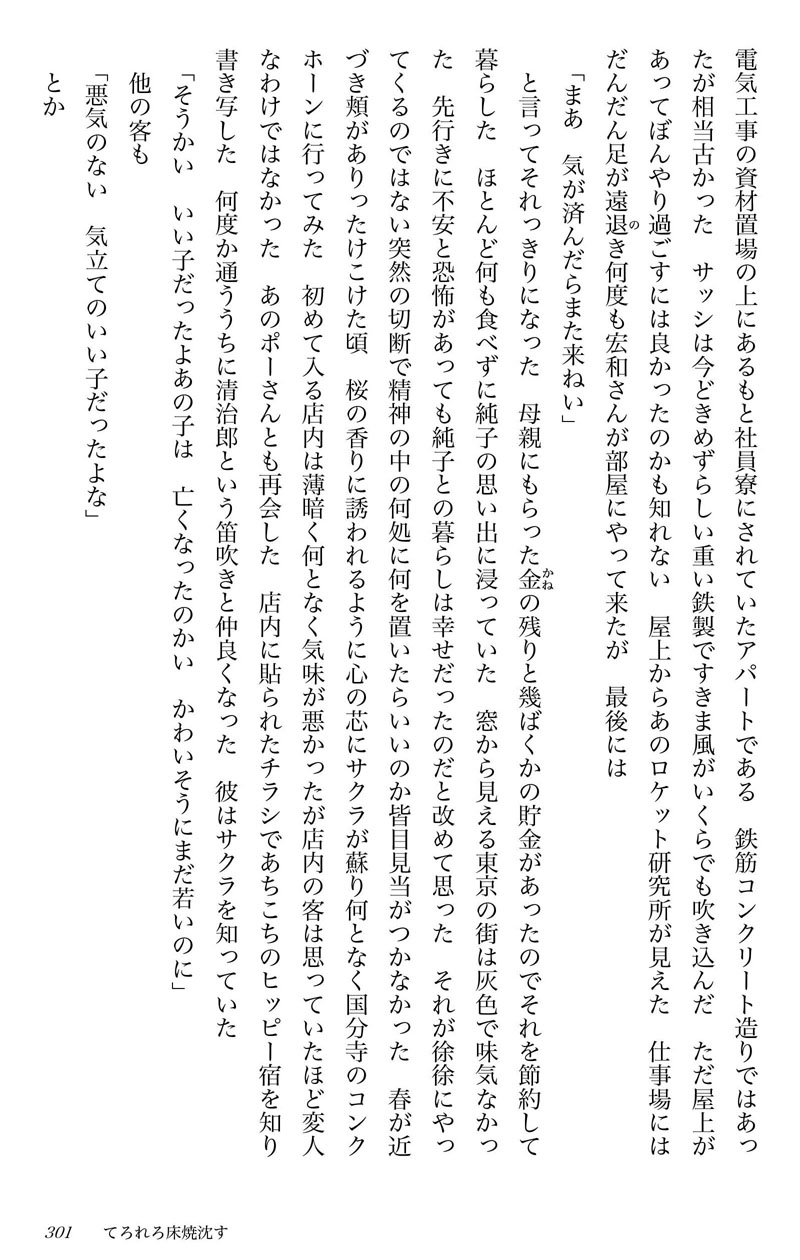 電気工事の資材置場の上にあるもと社員寮にされていたアパートである　鉄筋コンクリート造りではあっ
たが相当古かった　サッシは今どきめずらしい重い鉄製ですきま風がいくらでも吹き込んだ　ただ屋上が
あってぼんやり過ごすには良かったのかも知れない　屋上からあのロケット研究所が見えた　仕事場には
だんだん足が遠退のき何度も宏和さんが部屋にやって来たが　最後には
「まあ　気が済んだらまた来ねい」
　と言ってそれっきりになった　母親にもらった金かねの残りと幾ばくかの貯金があったのでそれを節約して
暮らした　ほとんど何も食べずに純子の思い出に浸っていた　窓から見える東京の街は灰色で味気なかっ
た　先行きに不安と恐怖があっても純子との暮らしは幸せだったのだと改めて思った　それが徐徐にやっ
てくるのではない突然の切断で精神の中の何処に何を置いたらいいのか皆目見当がつかなかった　春が近
づき頬がありったけこけた頃、桜の香りに誘われるように心の芯にサクラが蘇り何となく国分寺のコンク
ホーンに行ってみた　初めて入る店内は薄暗く何となく気味が悪かったが店内の客は思っていたほど変人
なわけではなかった　あのポーさんとも再会した　店内に貼られたチラシであちこちのヒッピー宿を知り
書き写した　何度か通ううちに清治郎という笛吹きと仲良くなった　彼はサクラを知っていた
「そうかい　いい子だったよあの子は　亡くなったのかい　かわいそうにまだ若いのに」
他の客も
「悪気のない　気立てのいい子だったよな」
とか
301　てろれろ床焼沈す